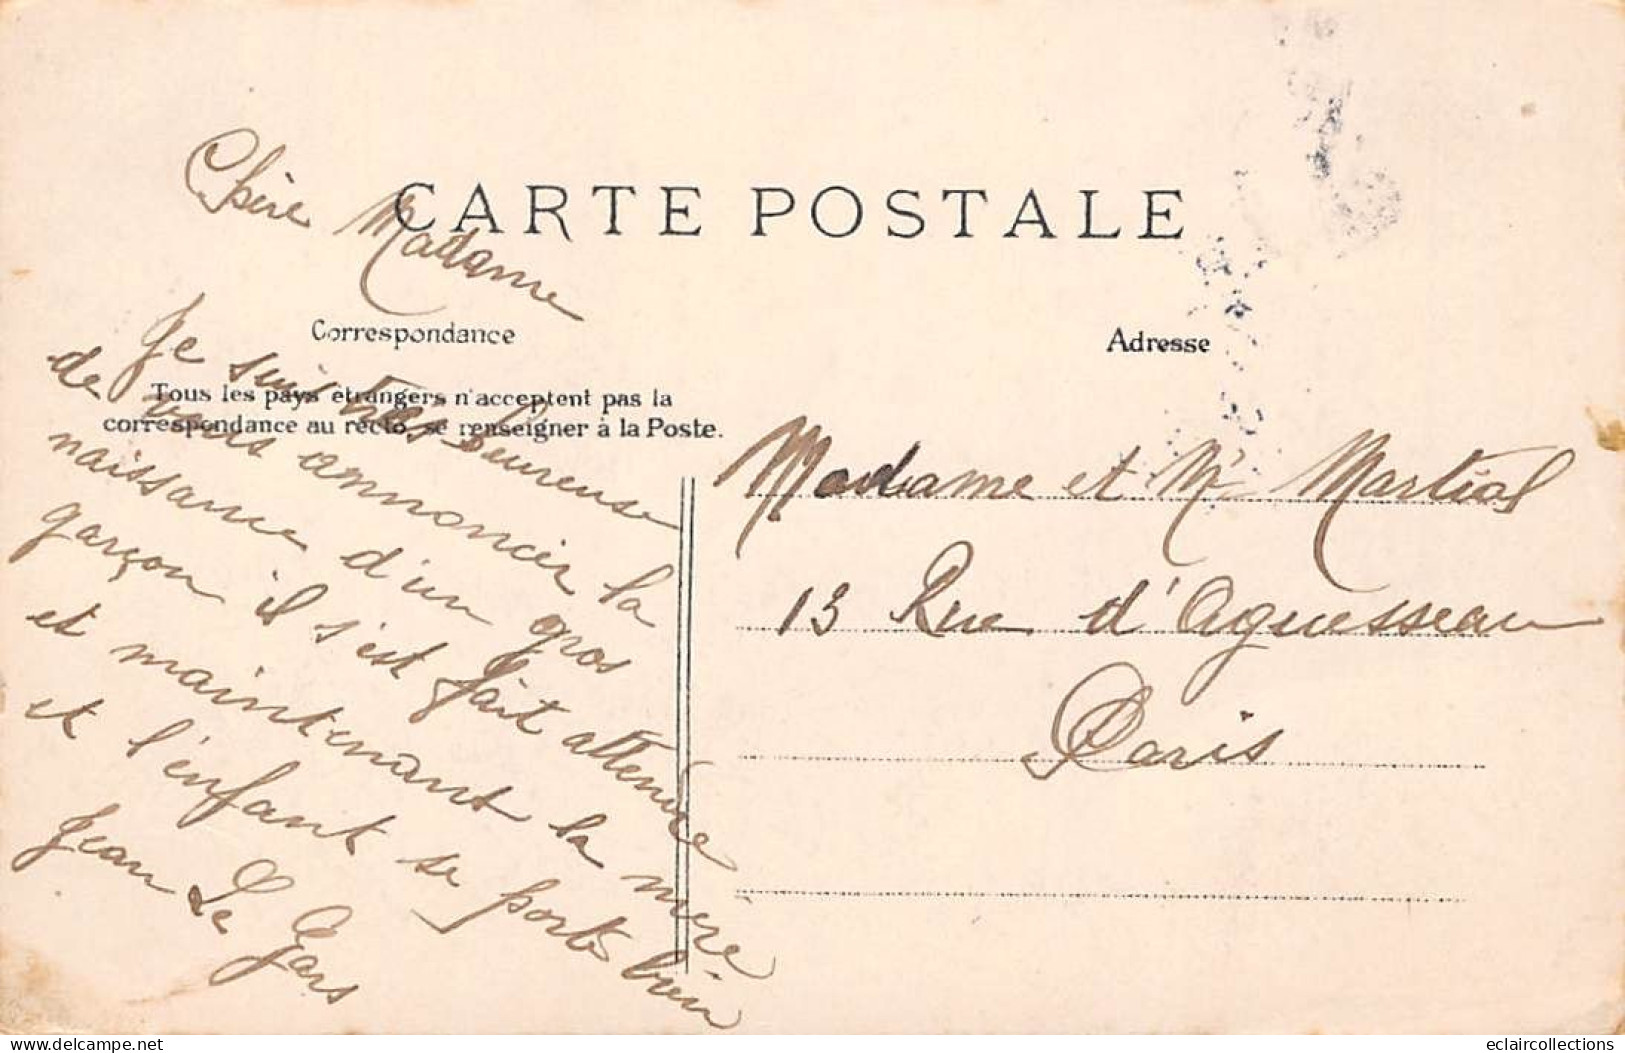 CARTE POSTALE
Correspondance
Tous les pays étrangers n'acceptent pas la
correspondance au recto, se renseigner à la Poste.
Adresse
Chère Madame
Je suis très heureuse
de vous annoncer la
naissance d'un gros
garçon il s'est fait attendre
et maintenant la mère
et l'enfant se porte bien
Jean Le Gars
Madame et Mr Martial
13 Rue d'Aguesseau
Paris
eclaircollections